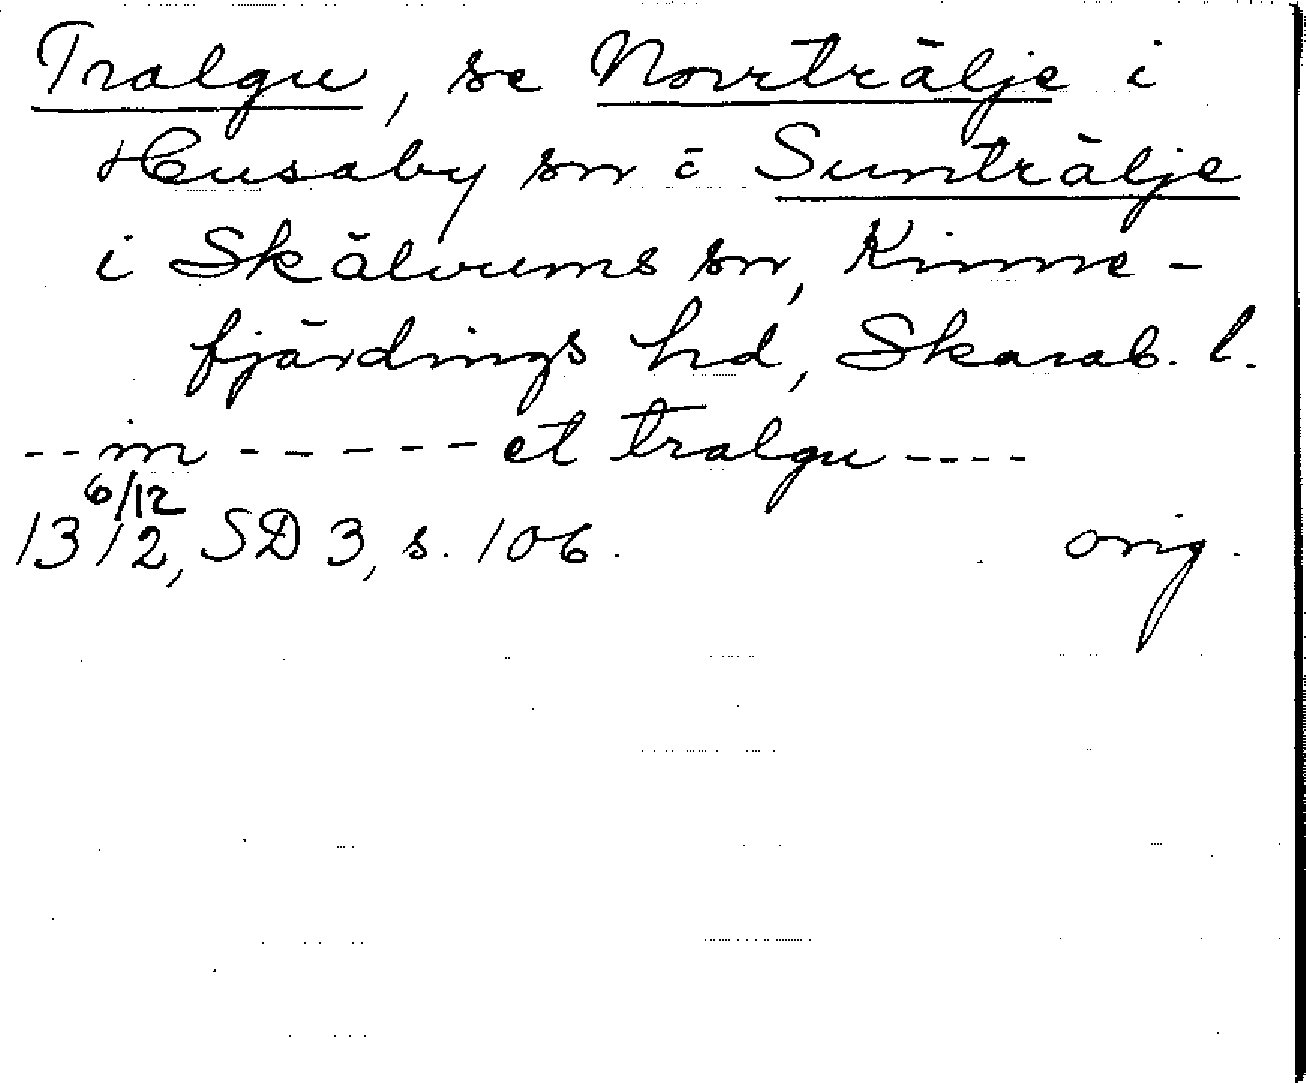 Tralgu, se Norrträlje i
Husaby sn o Sunträlje
i Skälvums sn, Kinne-
fjärdings hd, Skarab. l.
--in ----- et tralgu ----
6/12
1312, SD 3, s. 106. orig.